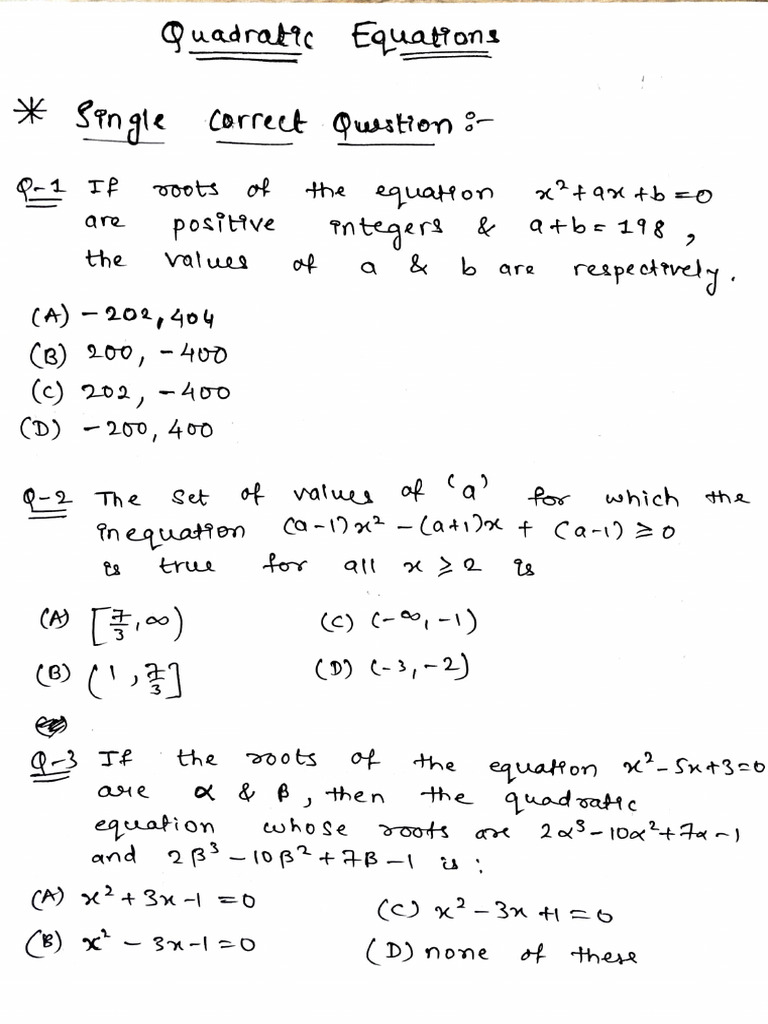 Quadratic Equations
* Single Correct Question :-
Q-1 If roots of the equation x² + ax + b = 0
are positive integers & a+b = 198,
the values of a & b are respectively.
(A) -202, 404
(B) 200, -400
(C) 202, -400
(D) -200, 400
Q-2 The set of values of 'a' for which the
inequation (a-1)x² - (a+1)x + (a-1) ≥ 0
is true for all x ≥ 2 is
(A) [7/3, ∞) (C) (-∞, -1)
(B) (1, 7/3] (D) (-3, -2)
Q-3 If the roots of the equation x² - 5x + 3 = 0
are α & β, then the quadratic
equation whose roots are 2α³ - 10α² + 7α - 1
and 2β³ - 10β² + 7β - 1 is :
(A) x² + 3x - 1 = 0 (C) x² - 3x + 1 = 0
(B) x² - 3x - 1 = 0 (D) none of these